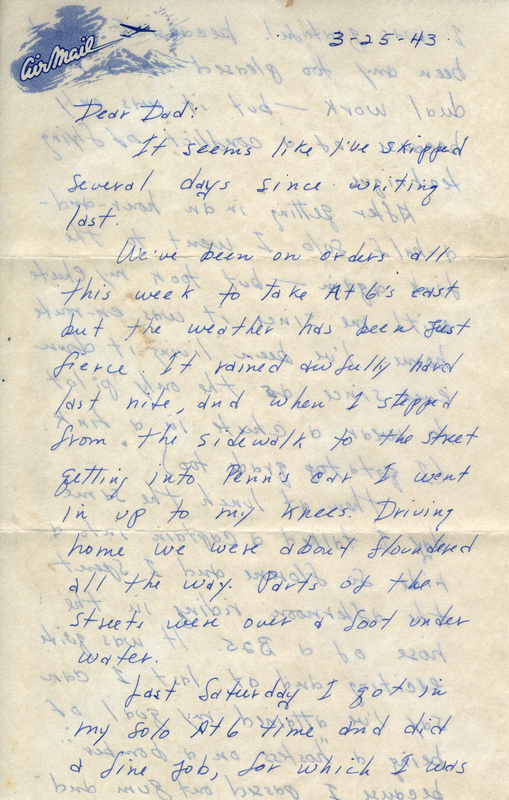 Air Mail
3-25-43.
Dear Dad:
It seems like I've skipped
several days since writing
last.
We've been on orders all
this week to take At6's east
but the weather has been just
fierce. It rained awfully hard
last nite, and when I stepped
from the sidewalk to the street
getting into Penn's car I went
in up to my knees. Driving
home we were about floundered
all the way. Parts of the
streets were over a foot under
water.
Last Saturday I got in
my solo At6 time and did
a fine job, for which I was